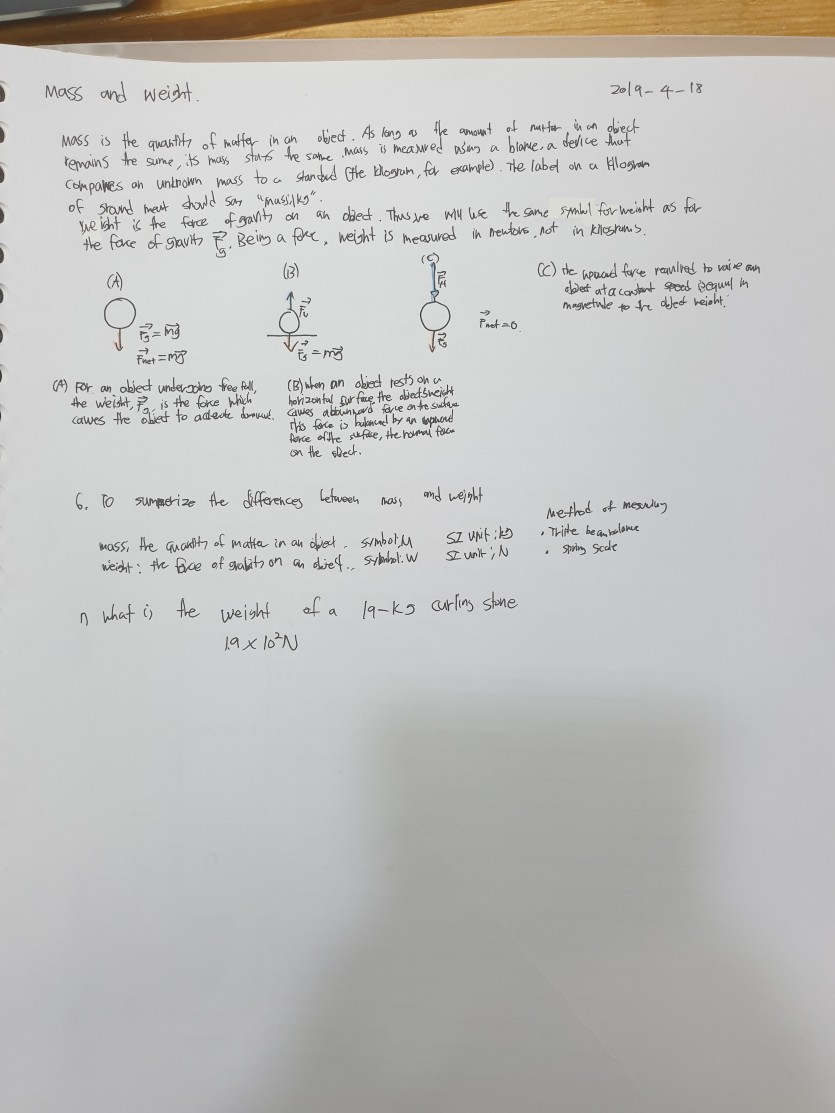 Mass and weight.
2019-4-18
Mass is the quantity of matter in an object. As long as the amount of matter in an object
remains the same, its mass stays the same. mass is measured using a blance, a device that
compares an unknown mass to a standard (the kilogram, for example). The label on a kilogram
of ground meat should say "mass:1kg".
Weight is the force of gravity on an object. Thus we will use the same symbol for weight as for
the force of gravity F⃗g. Being a force, weight is measured in newtons, not in kilograms.
(A)
F⃗g = mg⃗
F⃗net = mg⃗
(B)
F⃗N
F⃗g = mg⃗
(C)
F⃗H
F⃗g
F⃗net = 0.
(C) the upward force required to raise an
object at a constant speed is equal in
magnetude to the object weight.
(A) For an object undergoing free fall,
the weight, F⃗g, is the force which
causes the object to downward.
(B) when an object rests on a
horizontal surface, the object's weight
causes a downward force on the surface
This force is balanced by an upward
force of the surface, the normal force
on the object.
6. To summerize the differences between mass and weight
Method of mesuring
mass, the quantity of matter in an object. symbol:M SI unit: kg
· Triple beam balance
weight: the force of gravity on an object.. symbol:W SI unit; N
· spring scale
n what is the weight of a 19-kg curling stone
1.9 × 10²N